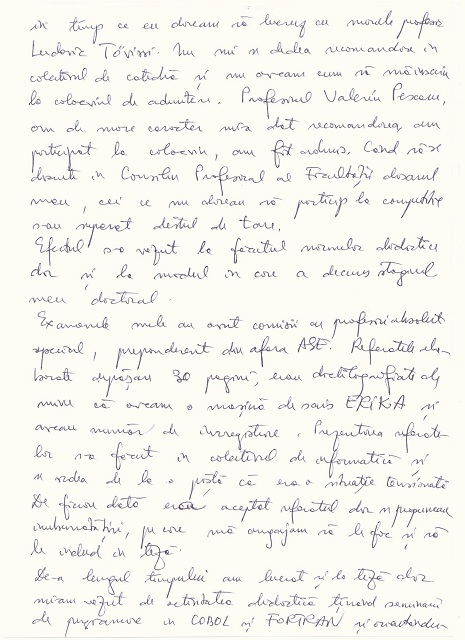 în timp ce eu doream să lucrez cu marele profesor
Ludovic Tövissi. Nu mi se dădea recomandare în
colectivul de catedră și nu aveam cum să mă înscriu
la colocviul de admitere. Profesorul Valeriu Pescaru,
om de mare caracter mi-a dat recomandarea, am
participat la colocviu, am fost admis. Când să se
discute în Consiliu Profesoral al Facultății dosarul
meu, cei ce nu doreau să particip la competiție
s-au supărat destul de tare.
Efectul s-a văzut la făcutul normelor didactice
dar și la modul în care a decurs stagiul
meu doctoral.
Examenele mele au avut comisii cu profesori absolut
special, preponderent din afara ASE. Referatele ela-
borate depășeau 30 pagini, erau dactilografiate de
mine că aveam o mașină de scris ERIKA și
aveau număr de înregistrare. Prezentarea referate-
lor s-a făcut în colectivul de informatică și
se vedea de la o poștă că era o situație tensionată
De fiecare dată era acceptat referatul dar se propuneau
îmbunătățiri, pe care mă angajam să le fac și să
le includ în teză.
De-a lungul timpului am lucrat și la teză dar
mi-am văzut de activitatea didactică ținând seminarii
de programare în COBOL și FORTRAN și